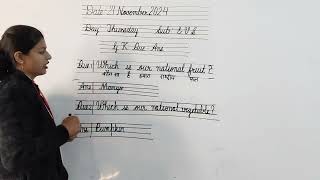 Date 21 November 2024
Day Thursday Sub E.V.S
G.K Que-Ans
Que1 Which is our national fruit?
कौन सा है हमारा राष्ट्रीय फल
Ans Mango
Que2 Which is our national vegetable?
Ans Pumpkin